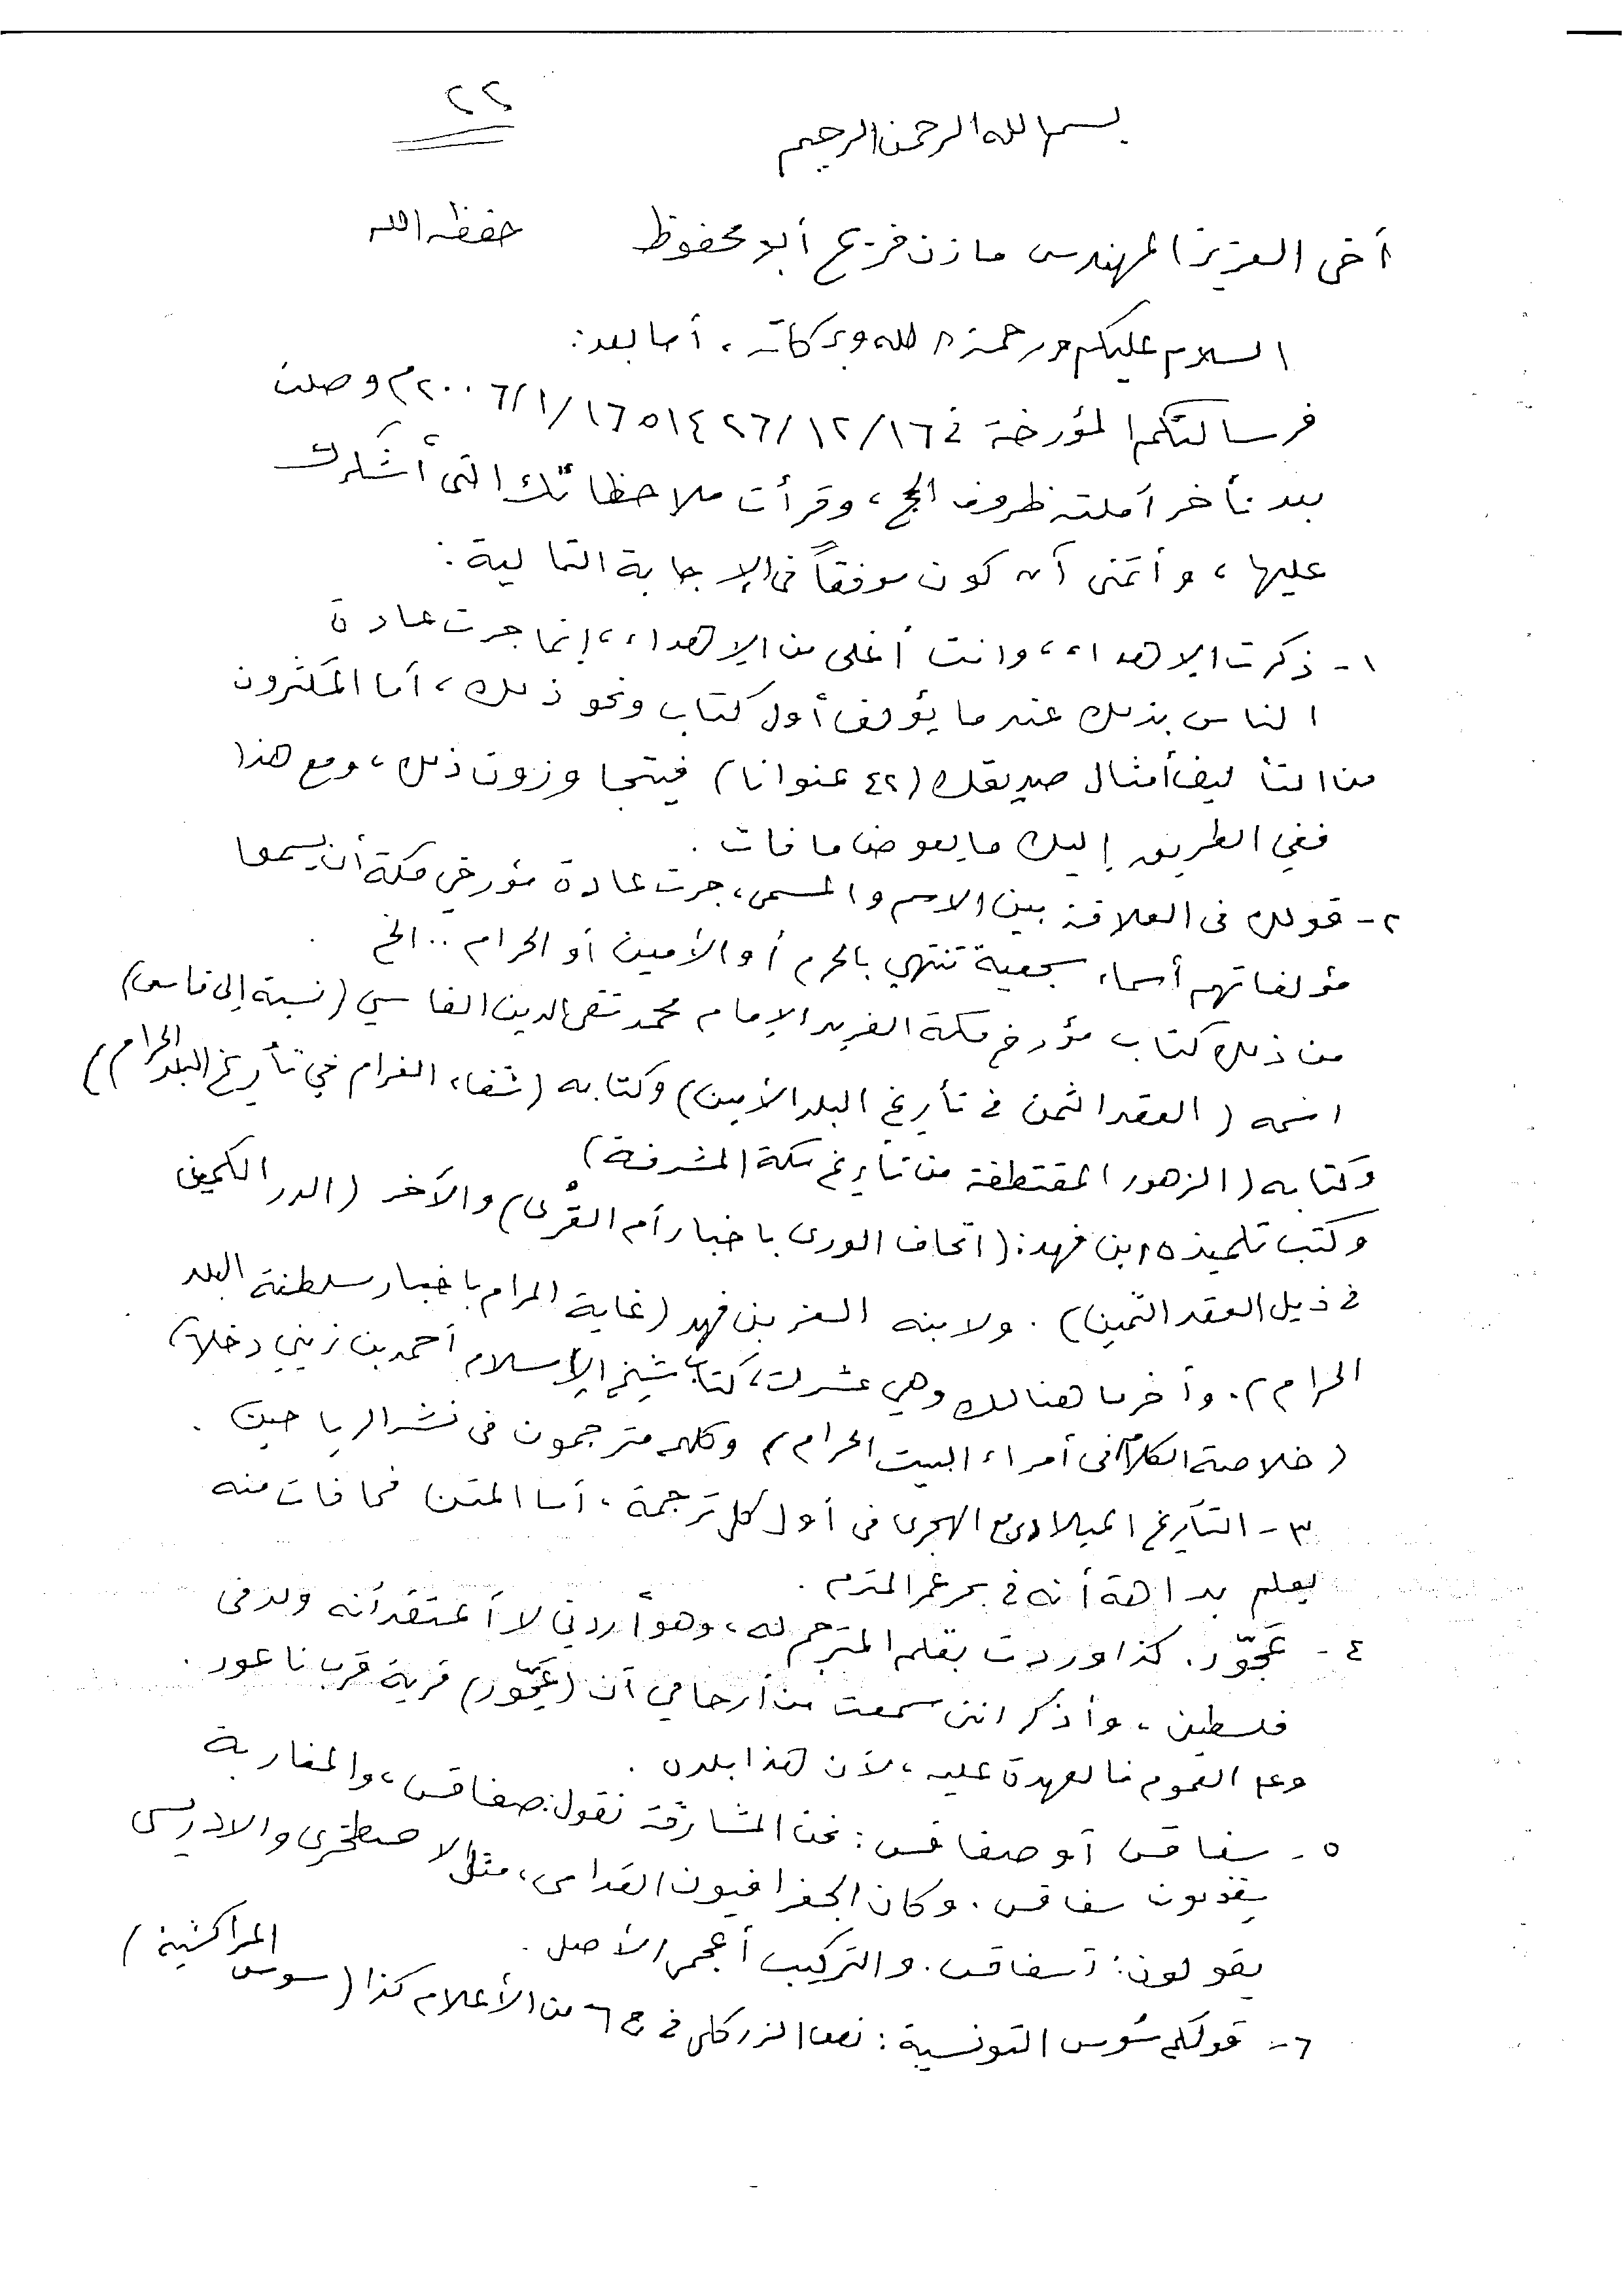 ٢٢
بسم الله الرحمن الرحيم
أخي العزيز المهندس مازن فريج أبو محفوظ حفظه الله
السلام عليكم ورحمة الله وبركاته، أما بعد:
فرسالتكم المؤرخة في ١٤٢٦/١٢/١٦ه ٢٠٠٦/١/١٦م وصلت
بعد تأخر أملته ظروف الحج، وقرأت ملاحظاتك التي أشكرك
عليها، وأتمنى أن كون موفقاً في الإجابة التالية:
١- ذكرت الإهداء، وانت أغلى من الإهداء، إنما جرت عادة
الناس بذلك عندما يؤلف أول كتاب ونحو ذلك، أما المكثرون
من التأليف أمثال صديقك (٤٢ عنوانا) فيتجاوزون ذلك، ومع هذا
ففي الطريق إليك ما يعوض ما فات.
٢- قولك في العلاقة بين الاسم والمسمى، جرت عادة مؤرخي مكة أن يسموا
مؤلفاتهم أسماء سجعية تنتهي بالحرم أو الأمين أو الحرام .. الخ
من ذلك كتاب مؤرخ مكة الفريد الإمام محمد تقي الدين الفاسي (نسبة إلى فاس)
اسمه (العقد الثمن في تأريخ البلد الأمين) وكتابه (شفاء الغرام في تأريخ البلد الحرام)
وكتابه (الزهور المقتطفة من تأريخ مكة المشرفة)
وكتب تلميذه ابن فهد: (اتحاف الورى باخبار أم القُرى) والآخر (الدر الكمين
في ذيل العقد الثمين). ولابنه العز بن فهد (غاية المرام باخبار سلطنة البلد
الحرام). وآخر ما هنالك وهي عشرات، كتاب شيخ الإسلام أحمد بن زيني دحلان
(خلاصة الكلام في أمراء البيت الحرام) وكلهم مترجمون في نشر الرياحين.
٣- التأريخ الميلادي مع الهجري في أول كل ترجمة، أما المتن فما فات منه
يعلم بداهة أنه في بحر عمر المترم.
٤- عجّور. كذا وردت بقلم المترجم له، وهو أردني لا أعتقد أنه ولد في
فلسطين، وأذكر انني سمعت من أرحامي أن (عجّور) قرية قرب ناعور.
وعلى العموم فالعهدة عليه، لأن هذا بلده.
٥- سفاقس أو صفاقس: نحن المشارقة نقول: صفاقس، والمغاربة
يقولون سفاقس. وكان الجغرافيون القدامى، مثل الاصطخري والادريسي
يقولون: أسفاقس. والتركيب أعجمي الأصل.
٦- قولكم سُوس التونسية: نص الزركلي في ج٦ من الأعلام كذا (سوس المراكشية)